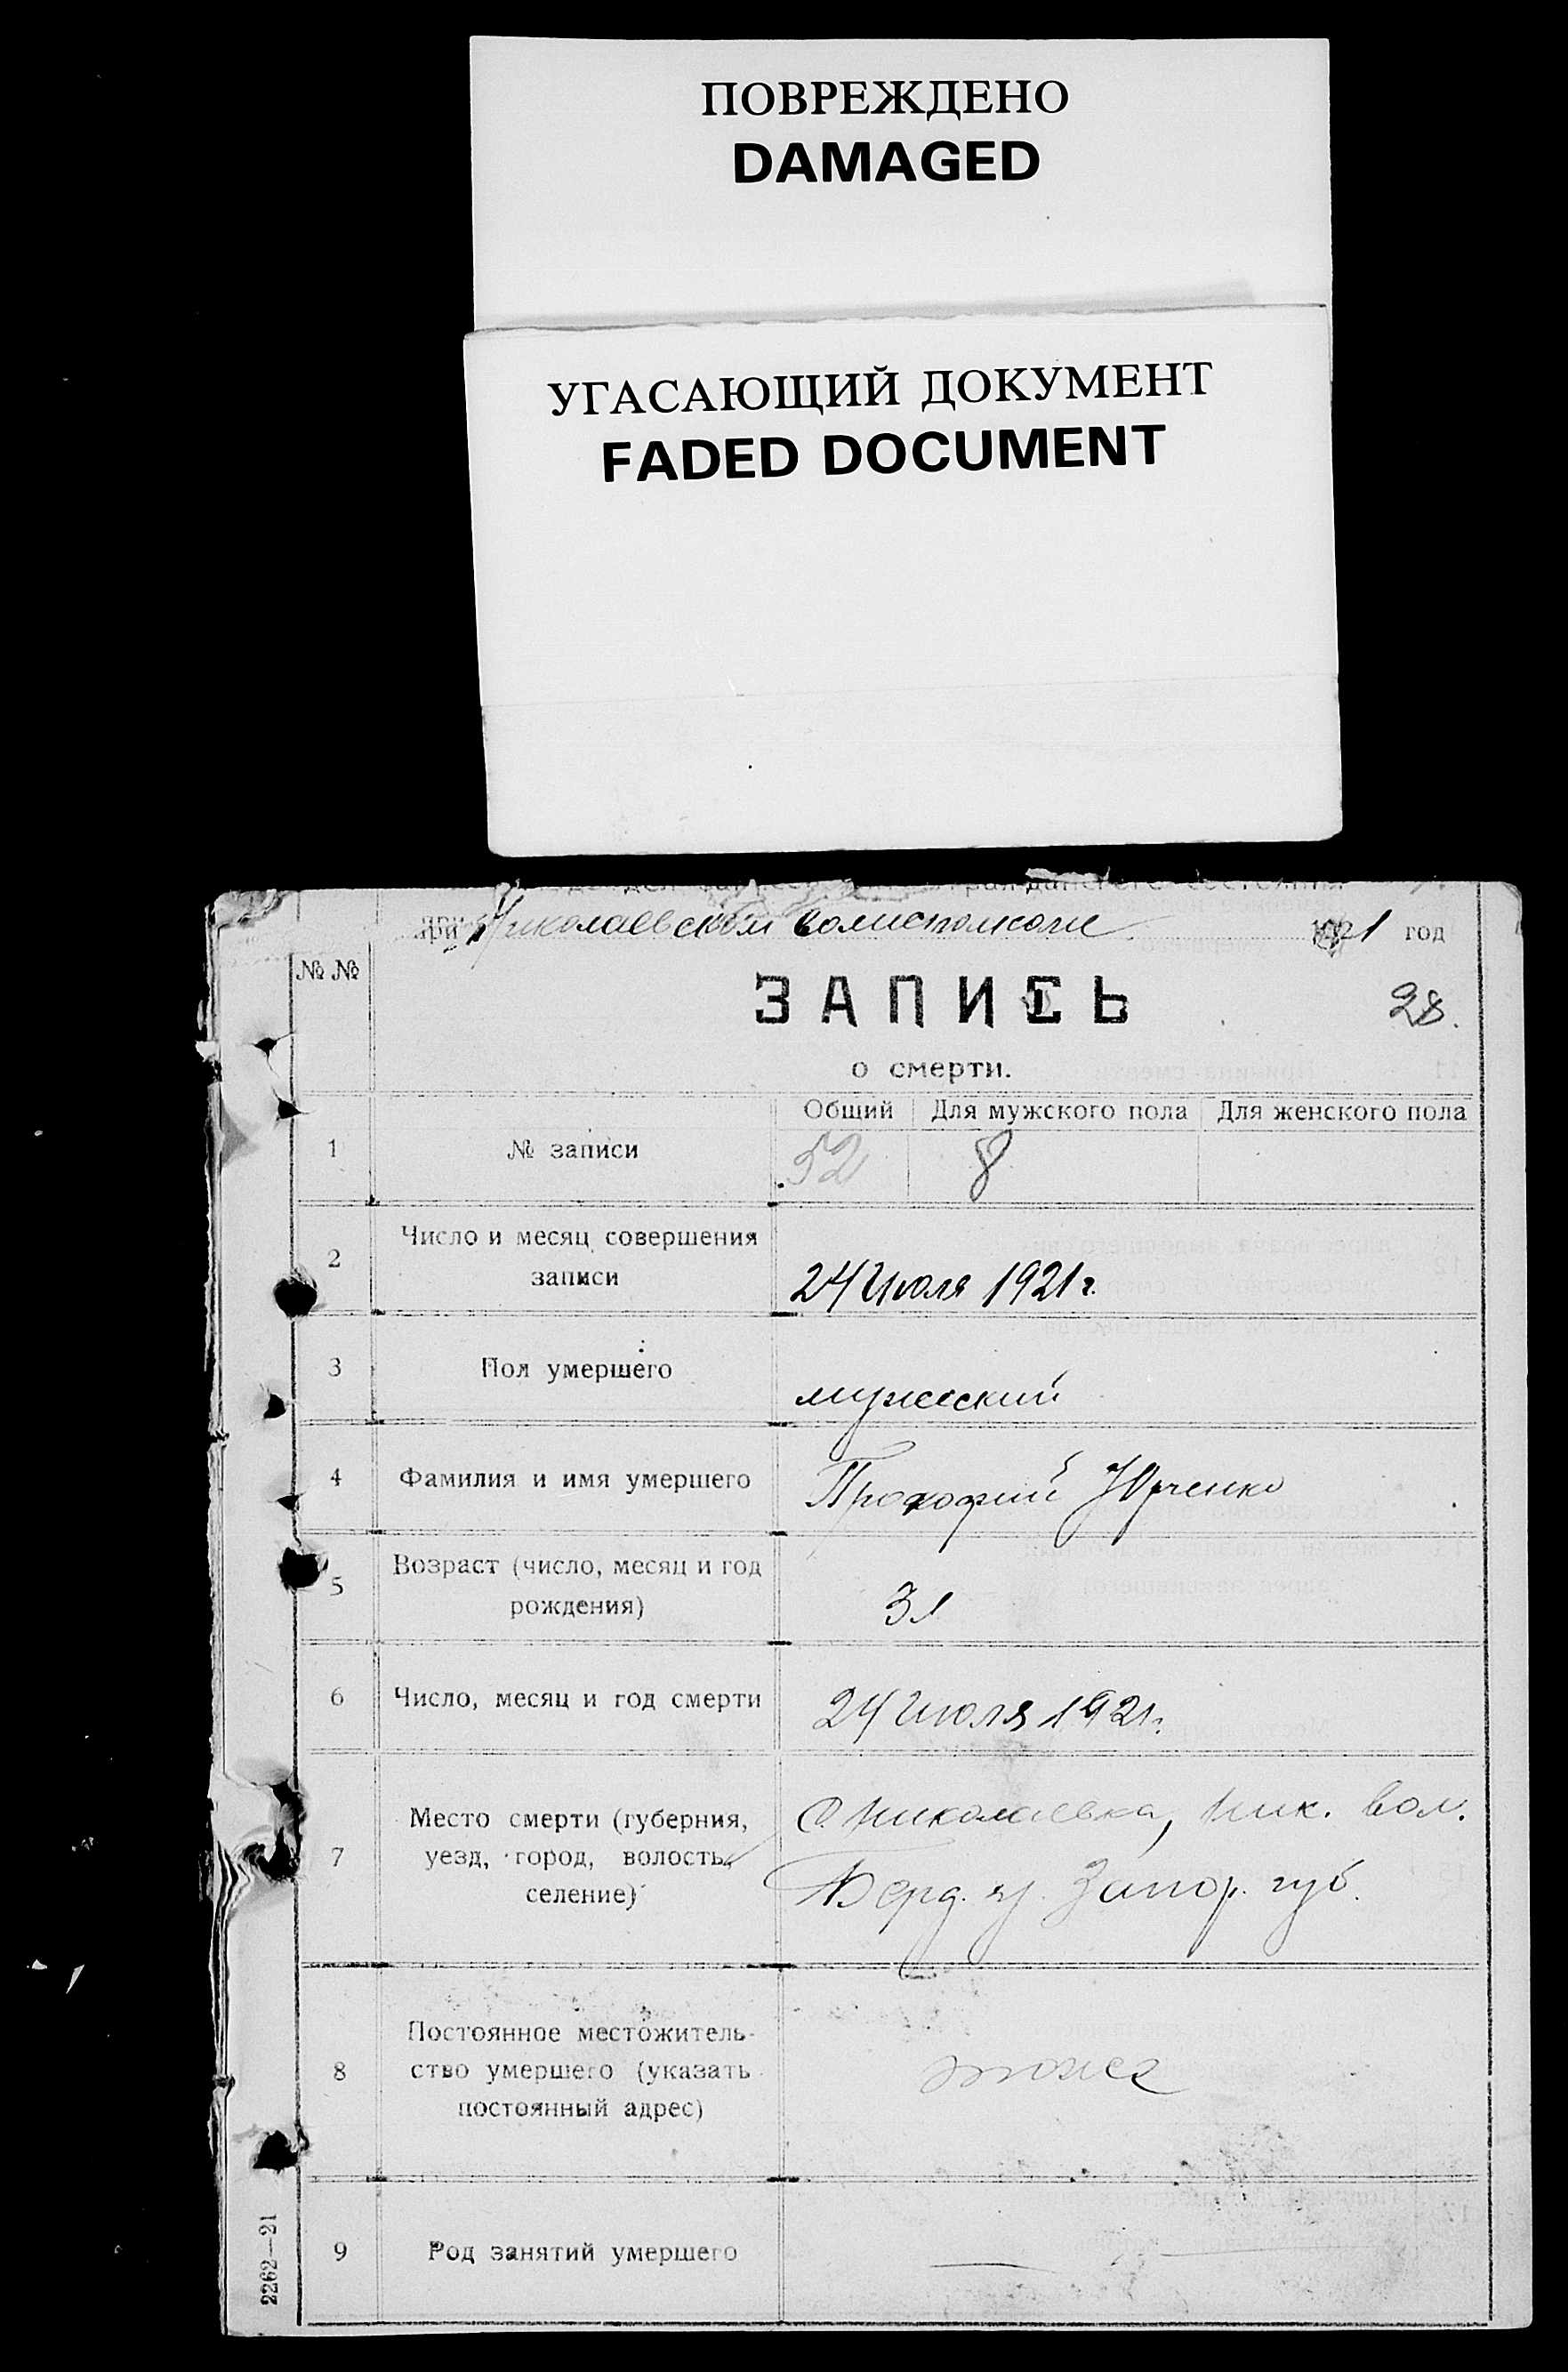 ПОВРЕЖДЕНО
DAMAGED
УГАСАЮЩИЙ ДОКУМЕНТ
FADED DOCUMENT
при Николаевском волисполкоме 1921 год
№ №
ЗАПИСЬ
28.
о смерти.
Общий Для мужского пола Для женского пола
1 № записи 52 8
2 Число и месяц совершения
записи 24 Июля 1921 г.
3 Пол умершего мужеский
4 Фамилия и имя умершего Прокофий Юрченко
5 Возраст (число, месяц и год
рождения) 3 л
6 Число, месяц и год смерти 24 Июля 1921 г.
7 Место смерти (губерния,
уезд, город, волость,
селение)
С. Николаевка, Ник. вол.
Берд. у. Запор. губ.
8 Постоянное местожитель-
ство умершего (указать
постоянный адрес)
9 Род занятий умершего —
2262—21